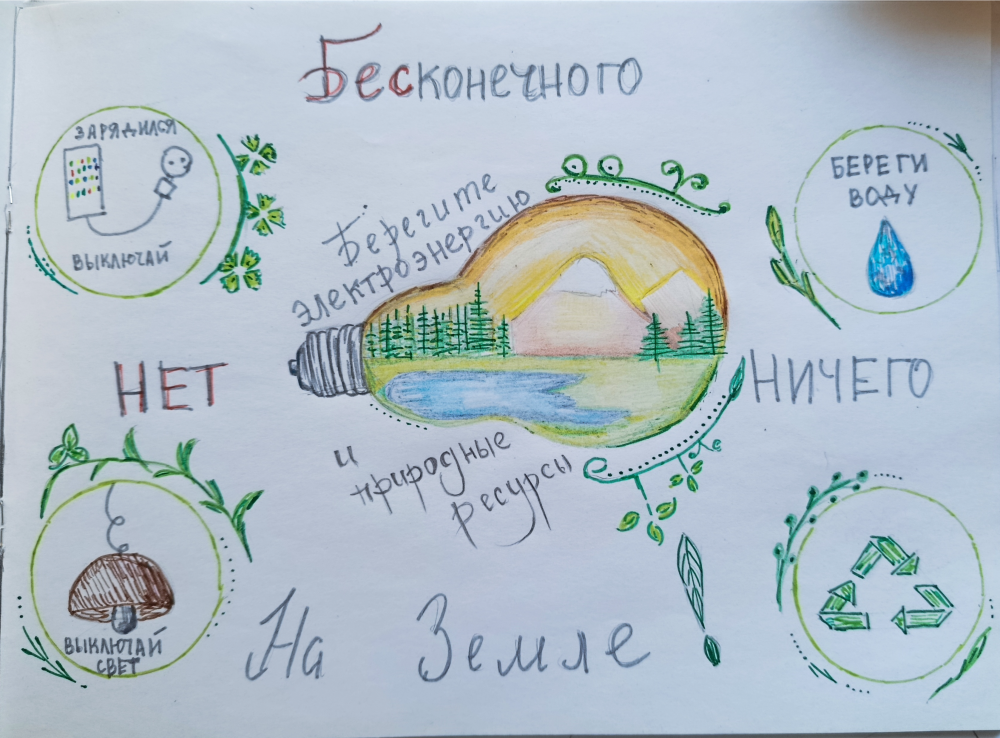 Бесконечного
ЗАРЯДИЛСЯ
ВЫКЛЮЧАЙ
БЕРЕГИ
ВОДУ
Берегите
электроэнергию
НЕТ
НИЧЕГО
и
природные
ресурсы
ВЫКЛЮЧАЙ
СВЕТ
На Земле!